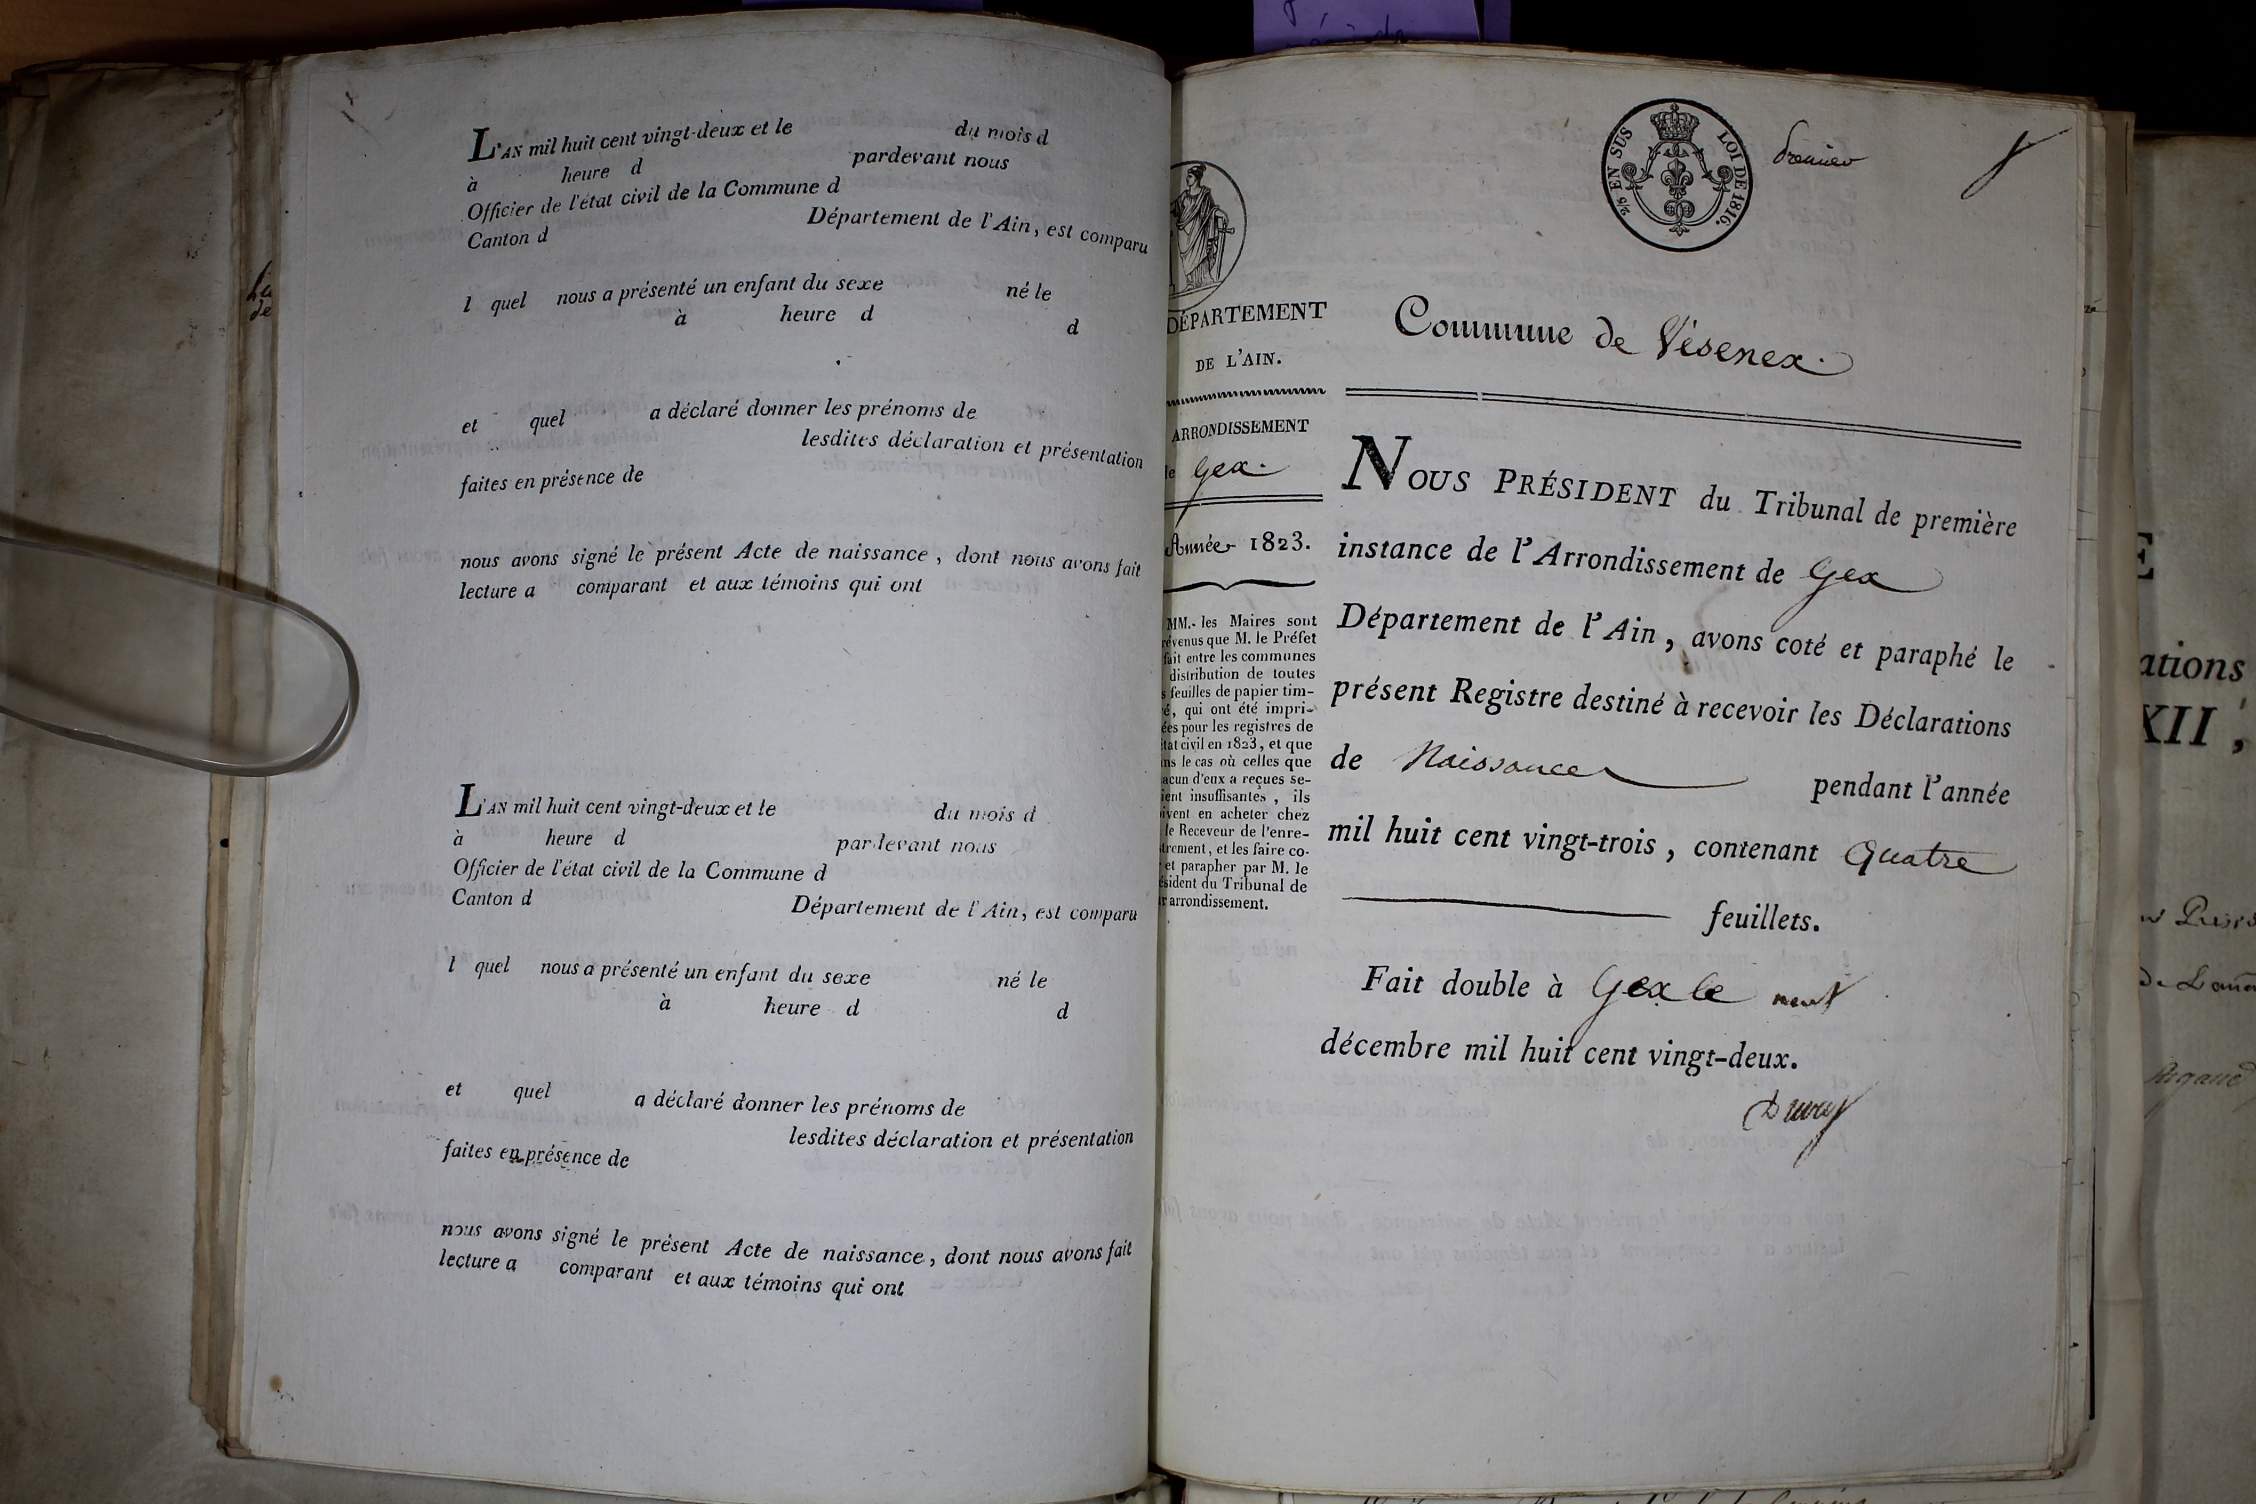 L'AN mil huit cent vingt-deux et le du mois d
à heure d pardevant nous
Officier de l'état civil de la Commune d
Canton d Département de l'Ain, est comparu
l quel nous a présenté un enfant du sexe né le
à heure d d
et quel a déclaré donner les prénoms de
lesdites déclaration et présentation
faites en présence de
nous avons signé le présent Acte de naissance, dont nous avons fait
lecture a comparant et aux témoins qui ont
L'AN mil huit cent vingt-deux et le du mois d
à heure d pardevant nous
Officier de l'état civil de la Commune d
Canton d Département de l'Ain, est comparu
l quel nous a présenté un enfant du sexe né le
à heure d d
et quel a déclaré donner les prénoms de
lesdites déclaration et présentation
faites en présence de
nous avons signé le présent Acte de naissance, dont nous avons fait
lecture a comparant et aux témoins qui ont
2/5 EN SUS LOI DE 1816.
premier
DÉPARTEMENT
DE L'AIN.
ARRONDISSEMENT
de Gex.
Année 1823.
MM. les Maires sont
révenus que M. le Préfet
fait entre les communes
distribution de toutes
s feuilles de papier tim-
é, qui ont été impri-
ées pour les registres de
état civil en 1823, et que
ns le cas où celles que
acun d'eux a reçues se-
ient insuffisantes, ils
oivent en acheter chez
le Receveur de l'enre-
trement, et les faire co-
et parapher par M. le
ésident du Tribunal de
r arrondissement.
Commune de Vésenex.
NOUS PRÉSIDENT du Tribunal de première
instance de l'Arrondissement de Gex
Département de l'Ain, avons coté et paraphé le
présent Registre destiné à recevoir les Déclarations
de Naissances pendant l'année
mil huit cent vingt-trois, contenant Quatre
feuillets.
Fait double à Gex le neuf
décembre mil huit cent vingt-deux.
ations
XII,